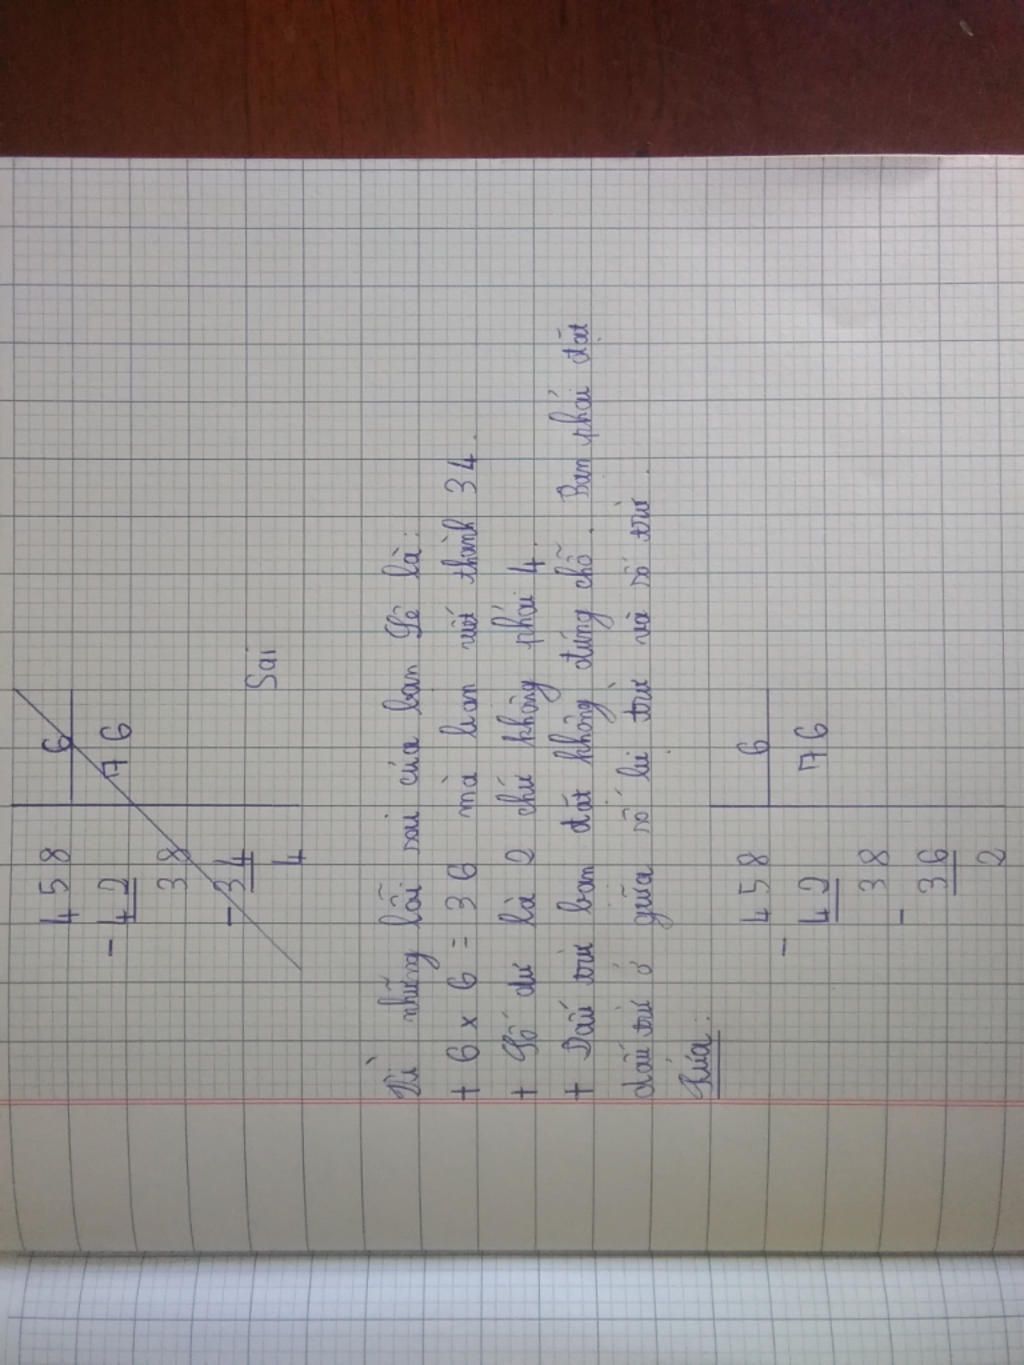 458 6
- 42 76
38
- 34
4
Sai
Vì những lỗi sai của bạn Lê là:
+ 6 x 6 = 36 mà bạn viết thành 34.
+ Số dư là 2 chứ không phải 4.
+ Dấu trừ bạn đặt không đúng chỗ. Bạn phải đặt
dấu trừ ở giữa số bị trừ và số trừ.
Sửa:
458 6
- 42 76
38
- 36
2